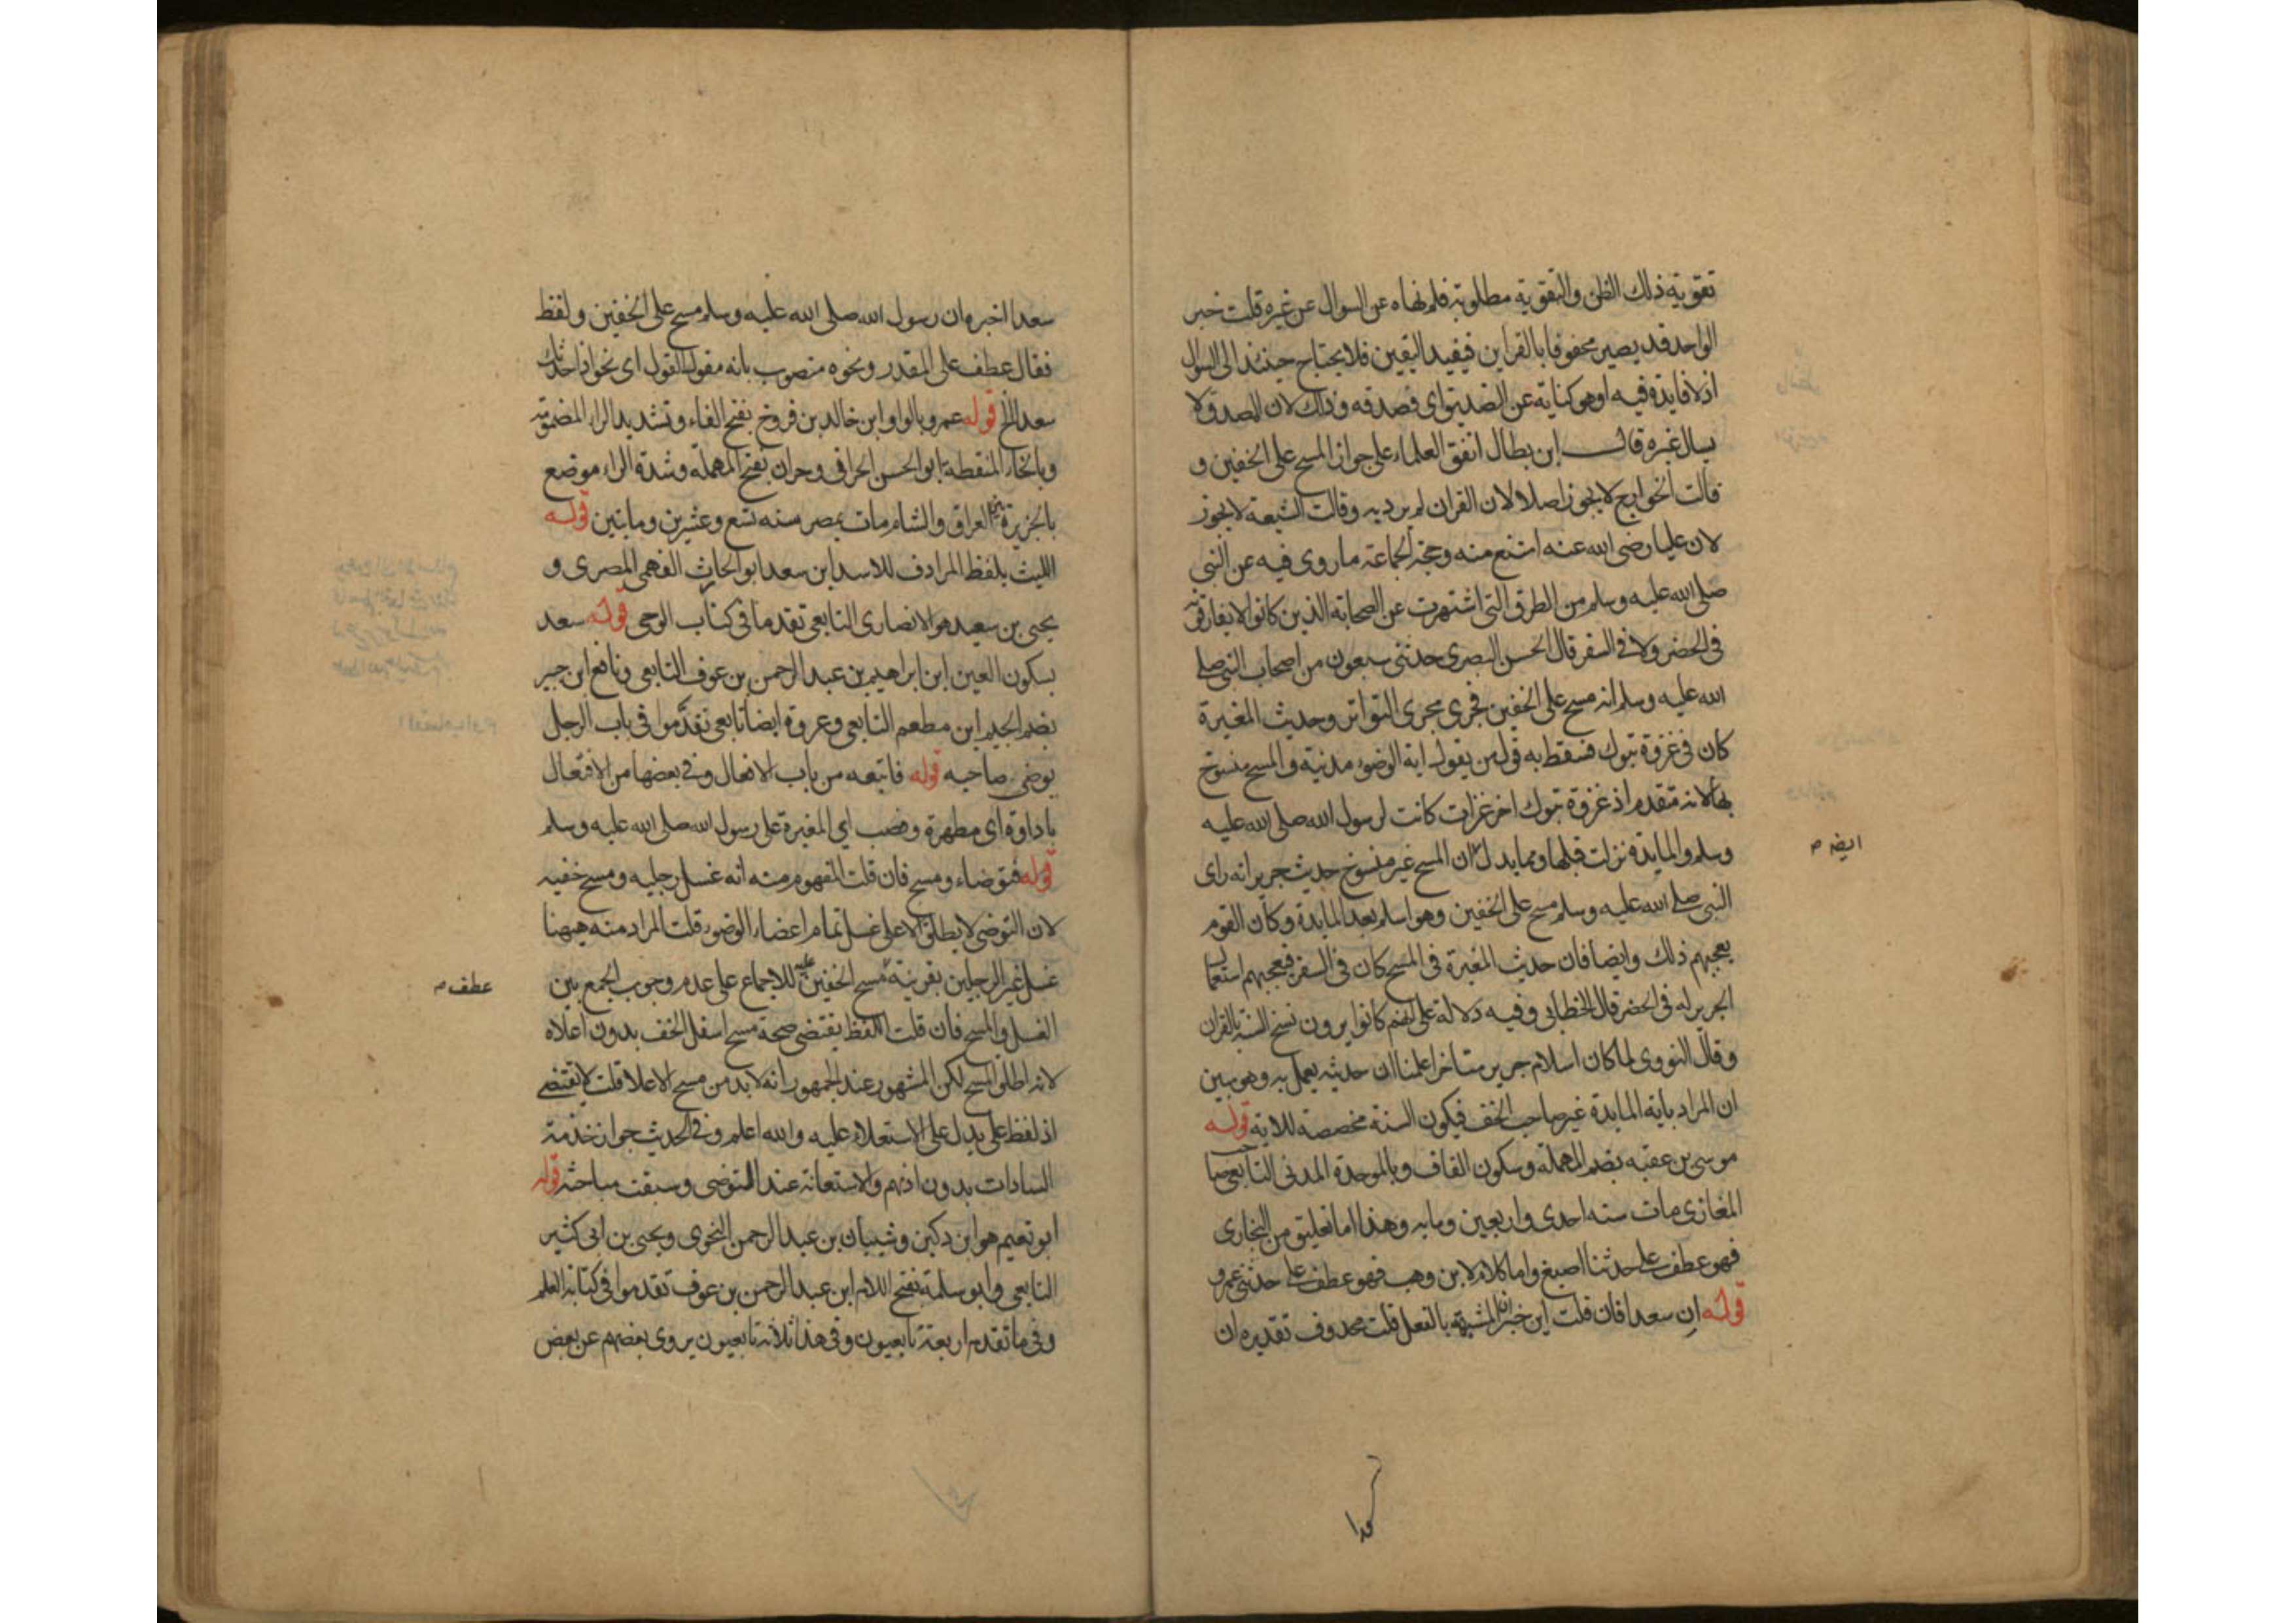 تقوية ذلك الظن والتقوية مطلوبة فلم نهاه عن السوال عن غيره قلت خبر
الواحد قد يصير محفوفا بالقراين فيفيد اليقين فلا يحتاج حينئذ الى السوال
اذ لا فايدة فيه او هو كناية عن التصديق اى فصدقه وذلك لان المصدق لا
يسال غيره قال ابن بطال اتفق العلماء على جواز المسح على الخفين و
قالت الخوارج لا يجوز اصلا لان القران لم يرد به وقالت الشيعة لا يجوز
لان عليا رضى الله عنه امتنع منه وحجة الجماعة ما روى فيه عن النبى
صلى الله عليه وسلم من الطرق التى اشتهرت عن الصحابة الذين كانوا لا يفارقونه
فى الحضر ولا فى السفر قال الحسن البصرى حدثنى سبعون من اصحاب النبى صلى
الله عليه وسلم انه مسح على الخفين فجرى مجرى التواتر وحديث المغيرة
كان فى غزوة تبوك فسقط به قول من يقول اية الوضوء مدنية والمسح منسوخ
بها لانه متقدم اذ غزوة تبوك اخر غزات كانت لرسول الله صلى الله عليه
وسلم والمايدة نزلت قبلها ومما يدل ان المسح غير منسوخ حديث جرير انه راى
ايضه
النبى صلى الله عليه وسلم مسح على الخفين وهو اسلم بعد المايدة وكان القوم
يعجبهم ذلك وايضا فان حديث المغيرة فى المسح كان فى السفر فيعجبهم استعمال
الجرير له فى الحضر قال الخطابى وفيه دلالة على انهم كانوا يرون نسخ السنة بالقران
وقال النووى لما كان اسلام جرير متاخرا علمنا ان حديثه يعمل به وهو مبين
ان المراد باية المايدة غير صاحب الخف فيكون السنة مخصصة للاية قوله
موسى بن عقبه بضم المهملة وسكون القاف وبالموحدة المدنى التابعى صاحب
المغازى مات سنه احدى واربعين ومايه وهذا اما تعليق من البخارى
فهو عطف على حدثنا اصبغ واما كلام لابن وهب فهو عطف على حدثنى عمرو
قوله ان سعدا فان قلت اين خبر ان المشبهة بالفعل قلت محذوف تقديره ان
سعدا اخبره ان رسول الله صلى الله عليه وسلم مسح على الخفين ولفظ
فقال عطف على المقدر ونحوه منصوب بانه مقول القول اى نحو اذا حدثك
سعد الخ قوله عمرو بالواو ابن خالد بن فروخ بفتح الفاء وتشديد الراء المضمومة
وبالخاء المنقطة ابو الحسن الحرانى وحران بفتح المهملة وشدة الراء موضع
بالجزيرة بين العراق والشام مات بمصر سنه تسع وعشرين ومايتين قوله
الليث بلفظ المرادف للاسد ابن سعد ابو الحارث الفهمى المصرى و
يحيى بن سعيد هو الانصارى التابعى تقدما فى كتاب الوحى قوله سعد
بسكون العين ابن ابراهيم بن عبد الرحمن بن عوف التابعى ونافع ابن جبير
بضم الجيم ابن مطعم التابعى وعروة ايضا تابعى تقدموا فى باب الرجل
يوضى صاحبه قوله فاتبعه من باب الافعال وفى بعضها من الافتعال
باداوة اى مطهرة وصب اى المغيرة على رسول الله صلى الله عليه وسلم
قوله فتوضاء ومسح فان قلت المفهوم منه انه غسل رجليه ومسح خفيه
لان التوضى لا يطلق الا على غسل تمام اعضاء الوضوء قلت المراد منه ههنا
غسل غير الرجلين بقرينة مسح الخفين عليه للاجماع على عدم وجوب الجمع بين
عطف
الغسل والمسح فان قلت اللفظ يقتضى صحة مسح اسفل الخف بدون اعلاه
لانه اطلق المسح لكن المشهور عند الجمهور انه لا بد من مسح الاعلا قلت لا يقتضى
اذ لفظ على يدل على الاستعلاء عليه والله اعلم وفى الحديث جواز خدمة
السادات بدون اذنهم والاستعانة عند التوضى وسبقت مباحثه قوله
ابو نعيم هو ابن دكين وشيبان بن عبد الرحمن النحوى ويحيى بن ابى كثير
التابعى وابو سلمة بفتح اللام ابن عبد الرحمن بن عوف تقدموا فى كتابة العلم
وفى ما تقدم اربعة تابعيون وفى هذا ثلاثة تابعيون يروى بعضهم عن بعض